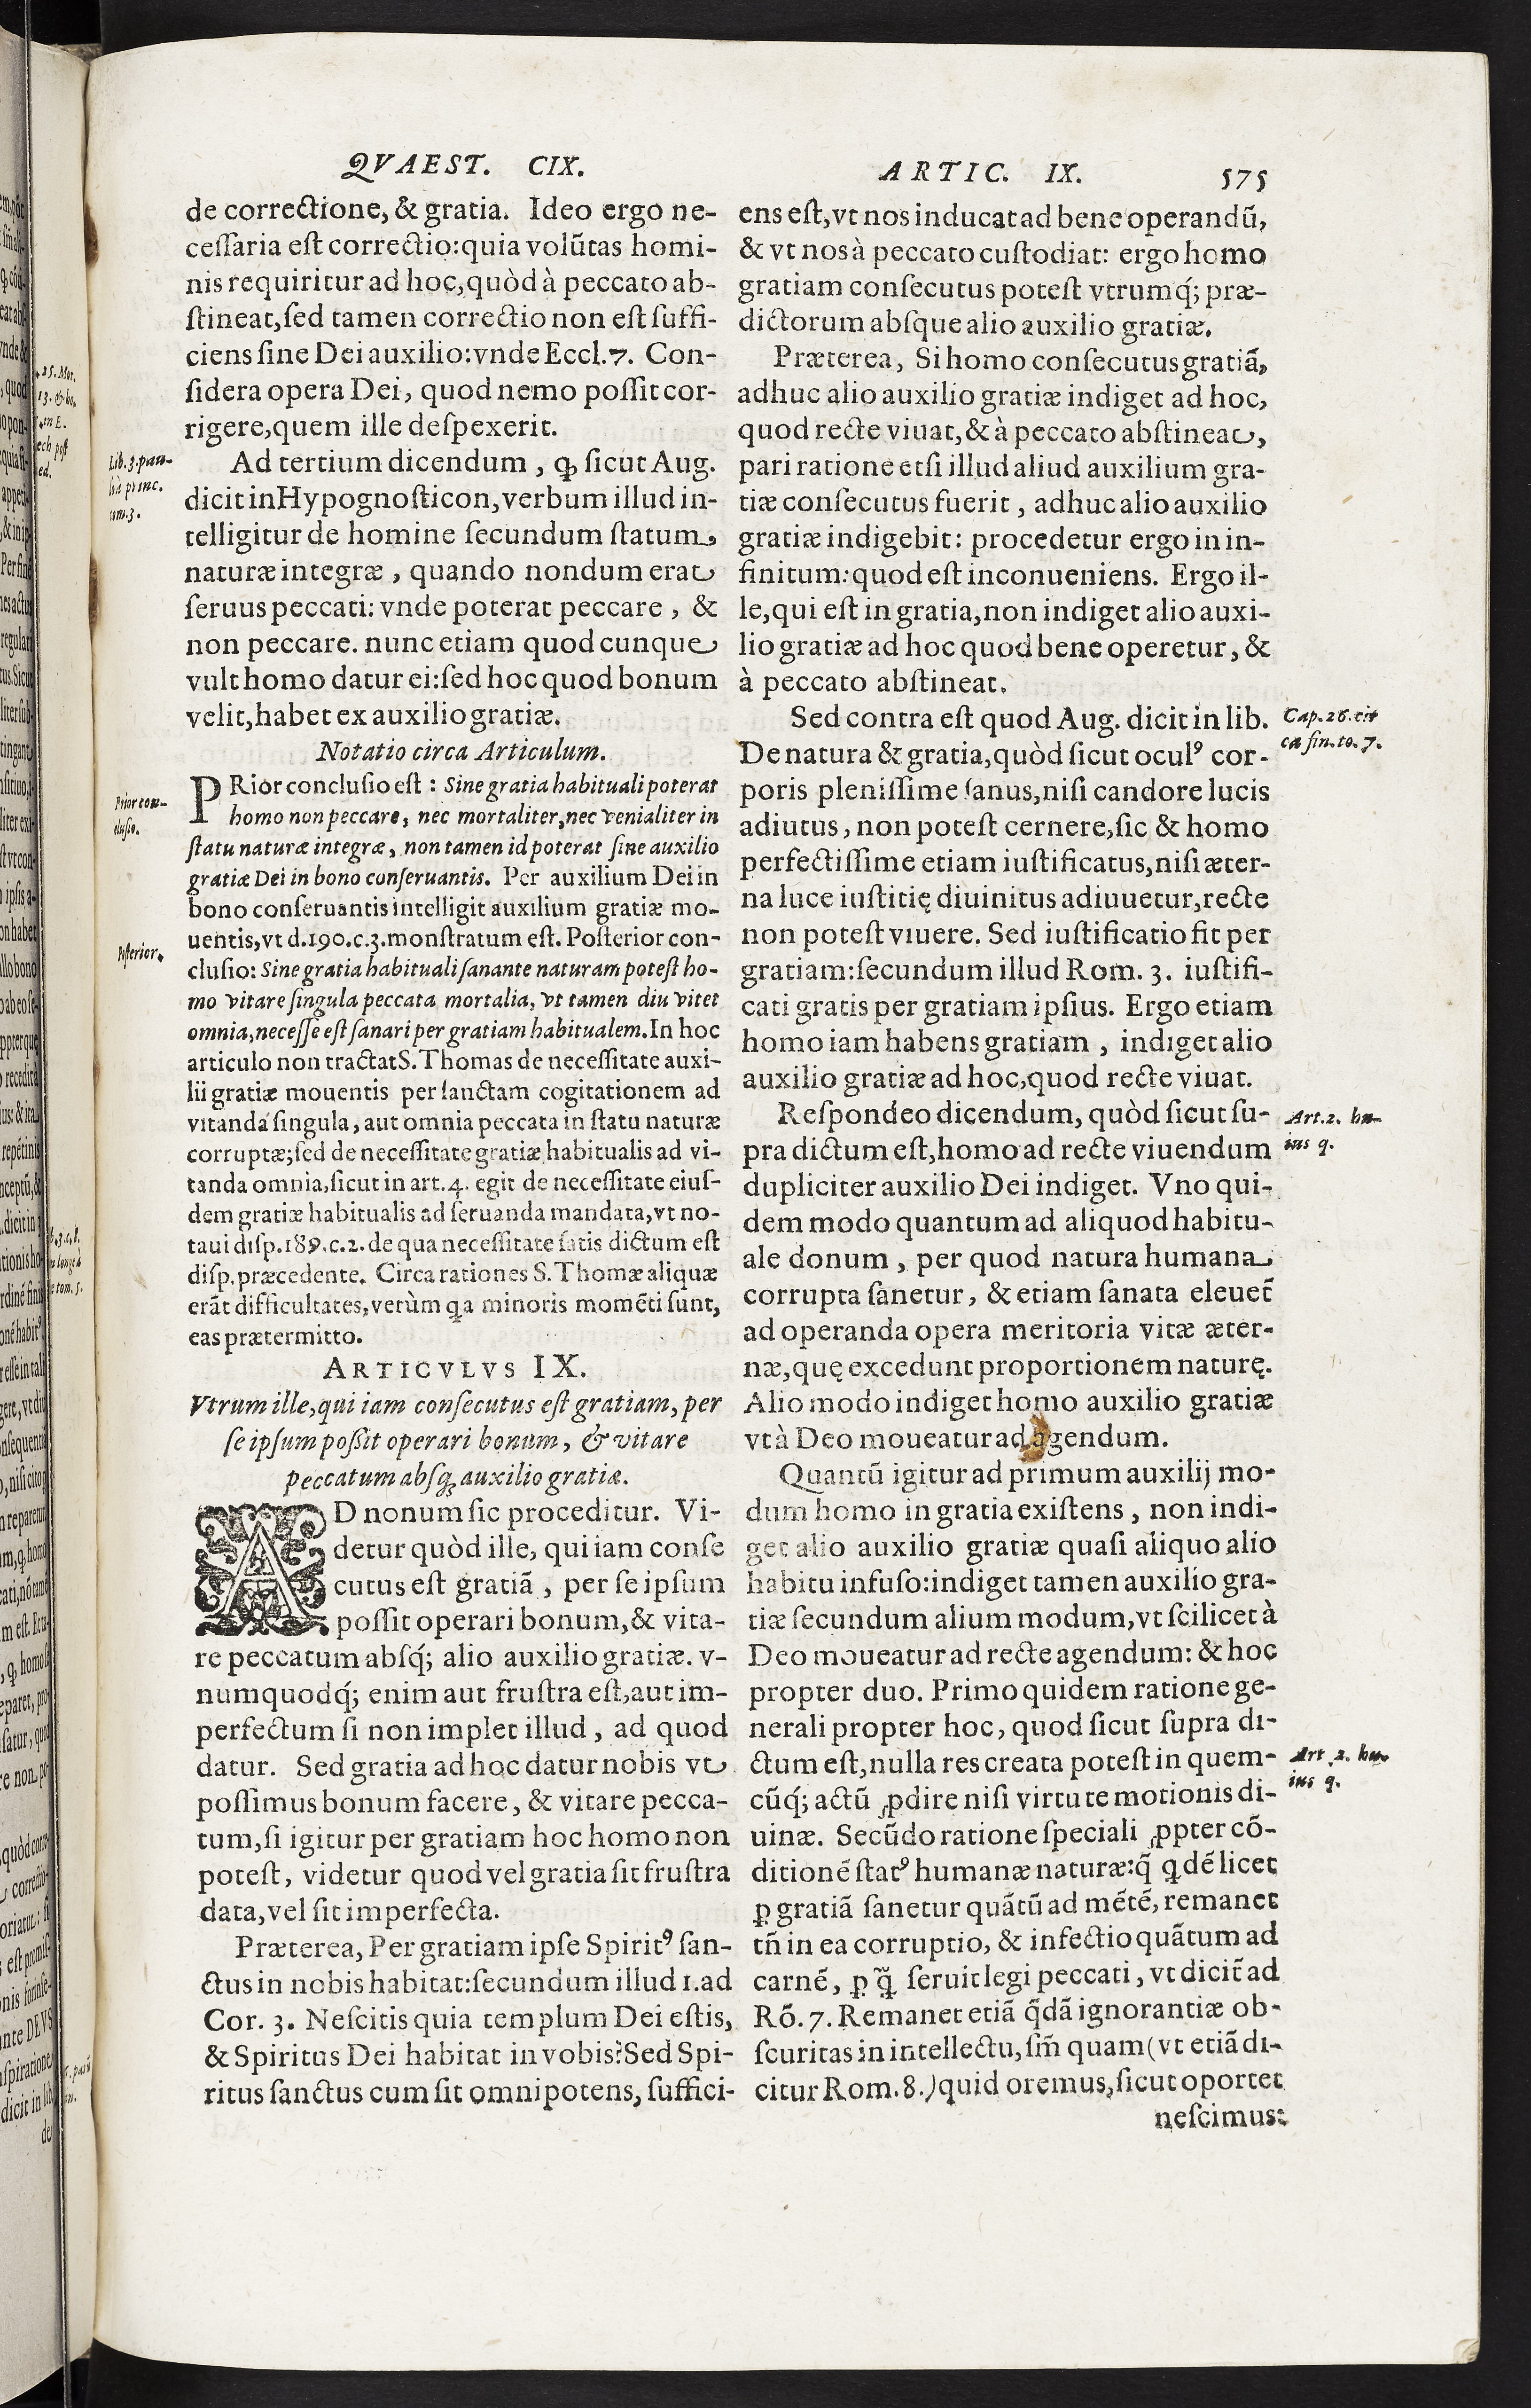 QVAEST. CIX.
de correctione, & gratia. Ideo ergo ne-
ceſſaria eſt correctio: quia volũtas homi-
nis requiritur ad hoc, quòd à peccato ab-
ſtineat, ſed tamen correctio non eſt ſuffi-
ciens ſine Dei auxilio: vnde Eccl. 7. Con-
ſidera opera Dei, quod nemo poſſit cor-
rigere, quem ille deſpexerit.
Ad tertium dicendum, ꝙ ſicut Aug.
dicit in Hypognoſticon, verbum illud in-
telligitur de homine ſecundum ſtatum
naturæ integræ, quando nondum erat
ſeruus peccati: vnde poterat peccare, &
non peccare. nunc etiam quodcunque
vult homo datur ei: ſed hoc quod bonum
velit, habet ex auxilio gratiæ.
Lib. 3.
princ.
tom. 3.
Notatio circa Articulum.
PRior concluſio eſt: Sine gratia habituali poterat
homo non peccare, nec mortaliter, nec venialiter in
ſtatu naturæ integræ, non tamen id poterat ſine auxilio
gratiæ Dei in bono conſeruantis. Per auxilium Dei in
bono conſeruantis intelligit auxilium gratiæ mo-
uentis, vt d. 190. c. 3. monſtratum eſt. Poſterior con-
cluſio: Sine gratia habituali ſanante naturam poteſt ho-
mo vitare ſingula peccata mortalia, vt tamen diu vitet
omnia, neceſſe eſt ſanari per gratiam habitualem. In hoc
articulo non tractat S. Thomas de neceſſitate auxi-
lii gratiæ mouentis per ſanctam cogitationem ad
vitanda ſingula, aut omnia peccata in ſtatu naturæ
corruptæ; ſed de neceſſitate gratiæ habitualis ad vi-
tanda omnia, ſicut in art. 4. egit de neceſſitate eiuſ-
dem gratiæ habitualis ad ſeruanda mandata, vt no-
taui diſp. 189. c. 2. de qua neceſſitate ſatis dictum eſt
diſp. præcedente. Circa rationes S. Thomæ aliquæ
erãt difficultates, verùm ꝗa minoris momẽti ſunt,
eas prætermitto.
Prior con-
cluſio.
Poſterior.
ARTICVLVS IX.
Vtrum ille, qui iam conſecutus eſt gratiam, per
ſe ipſum poſſit operari bonum, & vitare
peccatum abſq; auxilio gratiæ.
AD nonum ſic proceditur. Vi-
detur quòd ille, qui iam conſe
cutus eſt gratiã, per ſe ipſum
poſſit operari bonum, & vita-
re peccatum abſq́; alio auxilio gratiæ. v-
numquodq́; enim aut fruſtra eſt, aut im-
perfectum ſi non implet illud, ad quod
datur. Sed gratia ad hoc datur nobis vt
poſſimus bonum facere, & vitare pecca-
tum, ſi igitur per gratiam hoc homo non
poteſt, videtur quod vel gratia ſit fruſtra
data, vel ſit imperfecta.
Præterea, Per gratiam ipſe Spiritꝰ ſan-
ctus in nobis habitat: ſecundum illud 1. ad
Cor. 3. Neſcitis quia templum Dei eſtis,
& Spiritus Dei habitat in vobis? Sed Spi-
ritus ſanctus cum ſit omnipotens, ſuffici-
ARTIC. IX. 575
ens eſt, vt nos inducat ad bene operandũ,
& vt nos à peccato cuſtodiat: ergo homo
gratiam conſecutus poteſt vtrumq́; præ-
dictorum abſque alio auxilio gratiæ.
Præterea, Si homo conſecutus gratiã,
adhuc alio auxilio gratiæ indiget ad hoc,
quod recte viuat, & à peccato abſtineat,
pari ratione etſi illud aliud auxilium gra-
tiæ conſecutus fuerit, adhuc alio auxilio
gratiæ indigebit: procedetur ergo in in-
finitum: quod eſt inconueniens. Ergo il-
le, qui eſt in gratia, non indiget alio auxi-
lio gratiæ ad hoc quod bene operetur, &
à peccato abſtineat.
Sed contra eſt quod Aug. dicit in lib.
De natura & gratia, quòd ſicut oculꝰ cor-
poris pleniſſime ſanus, niſi candore lucis
adiutus, non poteſt cernere, ſic & homo
perfectiſſime etiam iuſtificatus, niſi æter-
na luce iuſtitię diuinitus adiuuetur, recte
non poteſt viuere. Sed iuſtificatio fit per
gratiam: ſecundum illud Rom. 3. iuſtifi-
cati gratis per gratiam ipſius. Ergo etiam
homo iam habens gratiam, indiget alio
auxilio gratiæ ad hoc, quod recte viuat.
Cap. 26. cir
ca fin. to. 7.
Reſpondeo dicendum, quòd ſicut ſu-
pra dictum eſt, homo ad recte viuendum
dupliciter auxilio Dei indiget. Vno qui-
dem modo quantum ad aliquod habitu-
ale donum, per quod natura humana
corrupta ſanetur, & etiam ſanata eleuet̃
ad operanda opera meritoria vitæ æter-
næ, quę excedunt proportionem naturę.
Alio modo indiget homo auxilio gratiæ
vt à Deo moueatur ad agendum.
Art. 2. hu-
ius q.
Quantũ igitur ad primum auxilij mo-
dum homo in gratia exiſtens, non indi-
get alio auxilio gratiæ quaſi aliquo alio
habitu infuſo: indiget tamen auxilio gra-
tiæ ſecundum alium modum, vt ſcilicet à
Deo moueatur ad recte agendum: & hoc
propter duo. Primo quidem ratione ge-
nerali propter hoc, quod ſicut ſupra di-
ctum eſt, nulla res creata poteſt in quem-
cũq́; actũ ꝓdire niſi virtute motionis di-
uinæ. Secũdo ratione ſpeciali ꝓpter cõ-
ditionẽ ſtatꝰ humanæ naturæ: q̃ ꝗdẽ licet
ꝑ gratiã ſanetur quãtũ ad mẽtẽ, remanet
tñ in ea corruptio, & infectio quãtum ad
carnẽ, ꝑ ꝗ̃ ſeruit legi peccati, vt dicit̃ ad
Rõ. 7. Remanet etiã q̃dã ignorantiæ ob-
ſcuritas in intellectu, ſm̃ quam (vt etiã di-
citur Rom. 8.) quid oremus, ſicut oportet
neſcimus:
Art. 2. hu-
ius q.